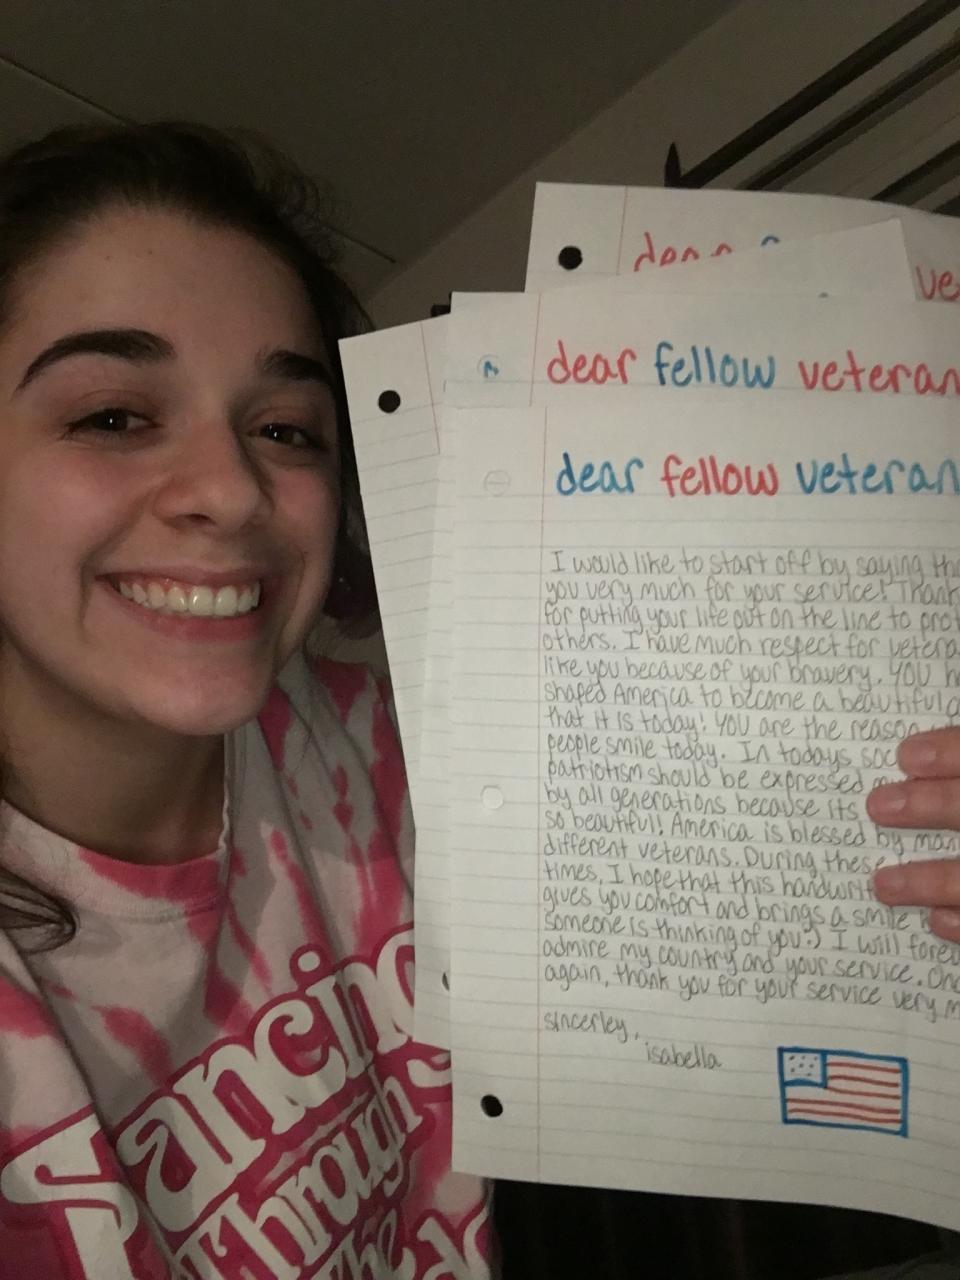 dear
ve
dear fellow veteran
dear fellow veteran
I would like to start off by saying
you very much for your service! Thank
for putting your life out on the line to
others. I have much respect for
like you because of your bravery. YOU
shaped America to become a beautiful
that it is today! YOU are the reason
people smile today. In todays
patriotism should be expressed
by all generations because its
so beautiful! America is blessed by
different veterans. During these
times, I hope that this
gives you comfort and brings a smile
someone is thinking of you:) I will
admire my country and your service.
again, thank you for your service very
sincerley,
isabella
Dancing
Through
The